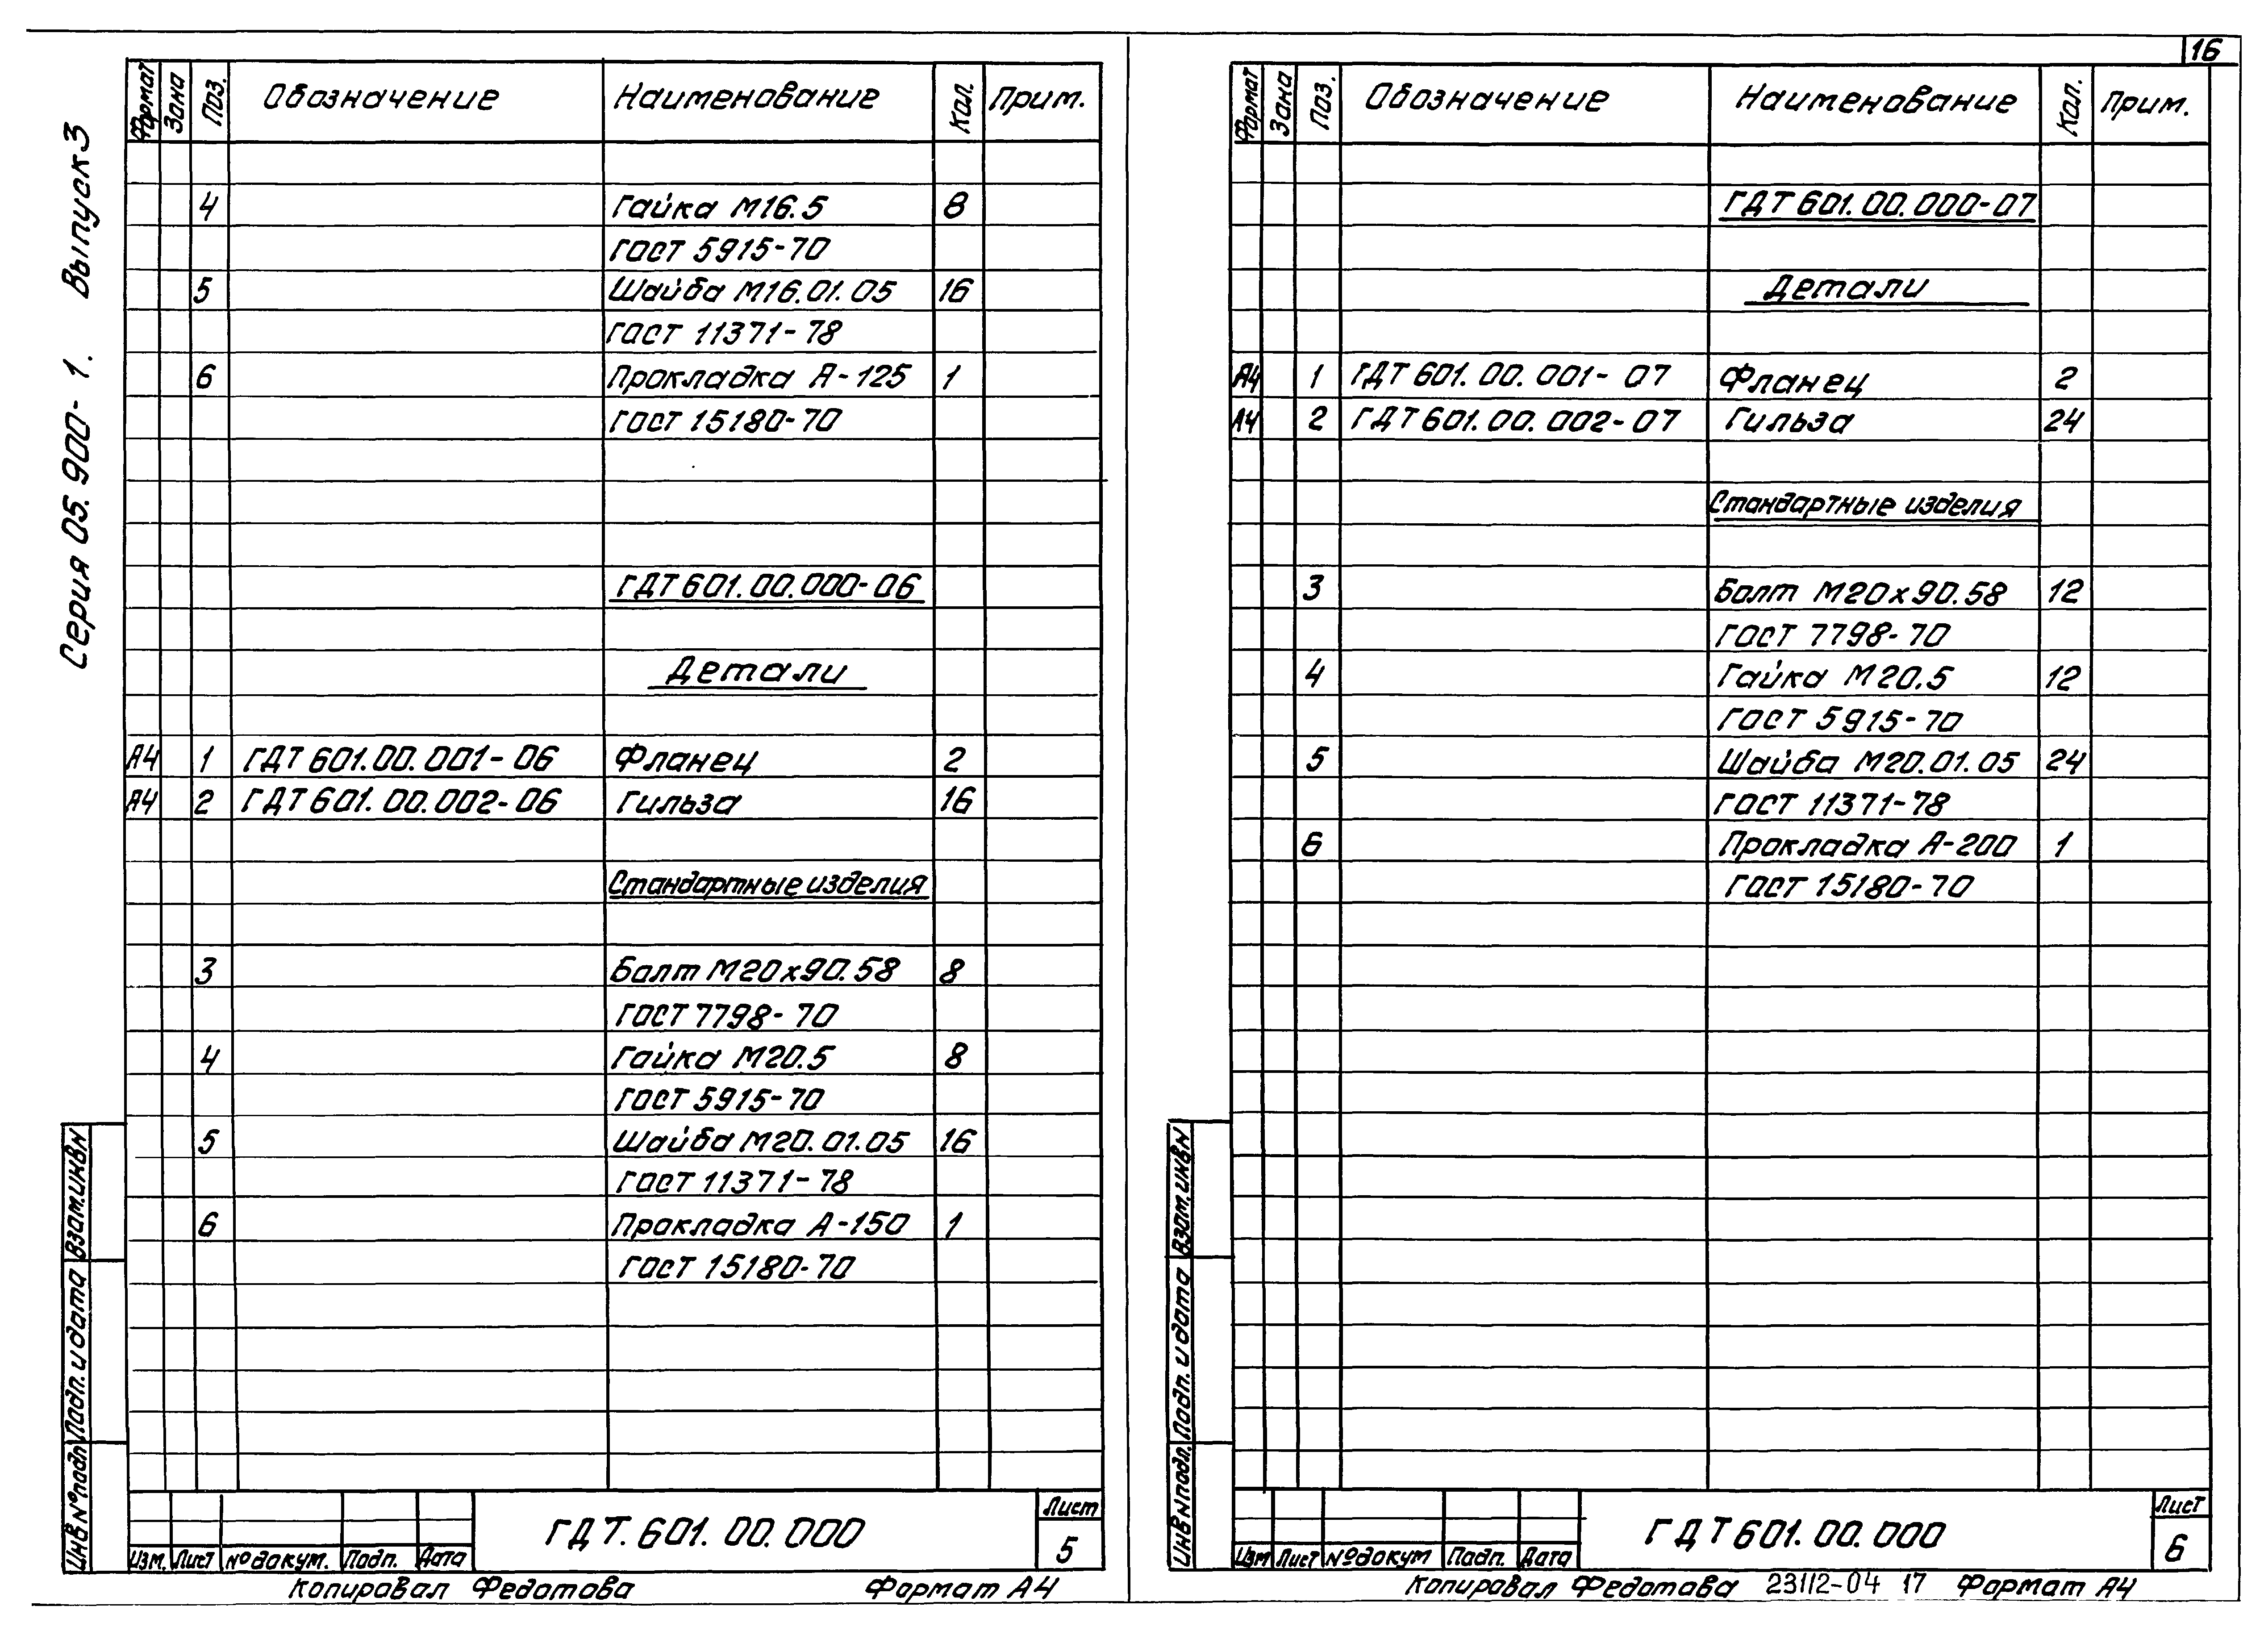 16
Серия 05.900-1. Выпуск 3
Формат Зона Поз. Обозначение Наименование Кол. Прим.
4 Гайка М16.5 8
ГОСТ 5915-70
5 Шайба М16.01.05 16
ГОСТ 11371-78
6 Прокладка А-125 1
ГОСТ 15180-70
ГДТ 601.00.000-06
Детали
А4 1 ГДТ 601.00.001-06 Фланец 2
А4 2 ГДТ 601.00.002-06 Гильза 16
Стандартные изделия
3 Болт М20х90.58 8
ГОСТ 7798-70
4 Гайка М20.5 8
ГОСТ 5915-70
5 Шайба М20.01.05 16
ГОСТ 11371-78
6 Прокладка А-150 1
ГОСТ 15180-70
Взам.инв№
Подп. и дата
Инв№подп.
Изм. Лист №докум. Подп. Дата
ГДТ.601.00.000
Лист
5
Копировал Федотова Формат А4
Формат Зона Поз. Обозначение Наименование Кол. Прим.
ГДТ 601.00.000-07
Детали
А4 1 ГДТ 601.00.001-07 Фланец 2
А4 2 ГДТ 601.00.002-07 Гильза 24
Стандартные изделия
3 Болт М20х90.58 12
ГОСТ 7798-70
4 Гайка М20.5 12
ГОСТ 5915-70
5 Шайба М20.01.05 24
ГОСТ 11371-78
6 Прокладка А-200 1
ГОСТ 15180-70
Взам.инв№
Подп. и дата
Инв№подп.
Изм Лист №докум Подп. Дата
ГДТ 601.00.000
Лист
6
Копировал Федотова 23112-04 17 Формат А4